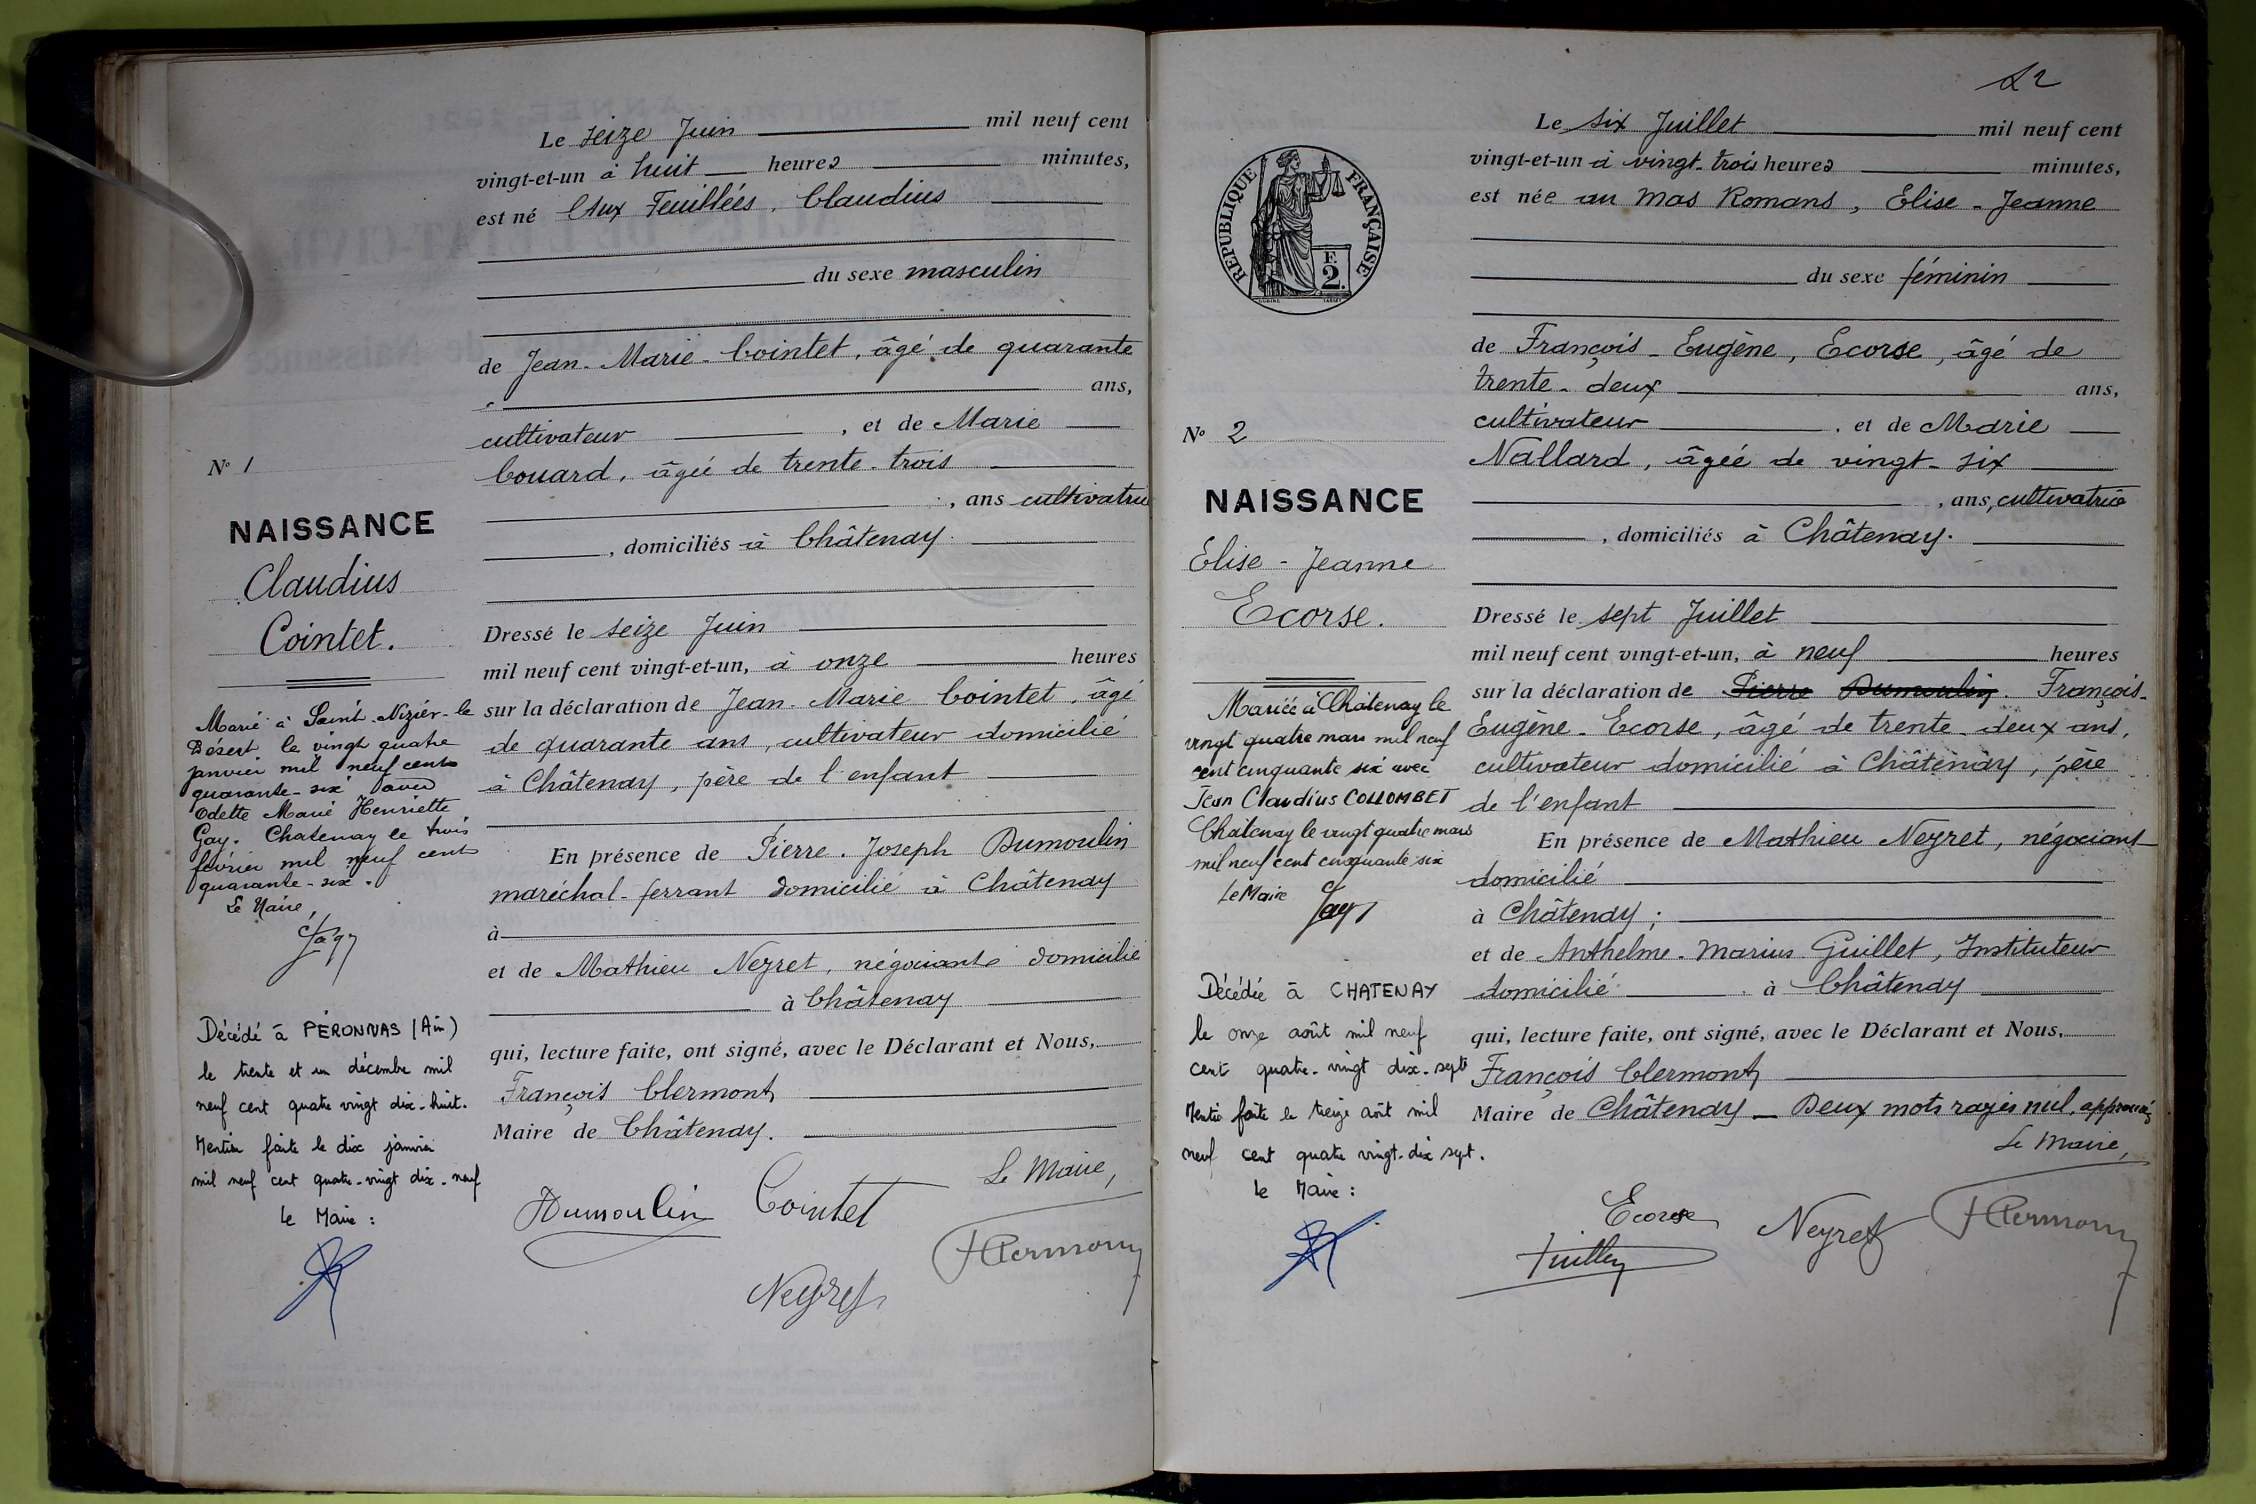 Le seize Juin mil neuf cent
vingt-et-un à huit heures minutes,
est né Aux Feuillées, Claudius
du sexe masculin
de Jean-Marie-Cointet, âgé de quarante
ans,
cultivateur , et de Marie
Couard, âgée de trente-trois
, ans cultivatrice
, domiciliés à Châtenay.
Dressé le seize Juin
mil neuf cent vingt-et-un, à onze heures
sur la déclaration de Jean-Marie Cointet, âgé
de quarante ans, cultivateur domicilié
à Châtenay, père de l'enfant
En présence de Pierre-Joseph Dumoulin
maréchal-ferrant domicilié à Châtenay
à
et de Mathieu Neyret, négociant domicilié
à Châtenay
qui, lecture faite, ont signé, avec le Déclarant et Nous,
François Clermont
Maire de Châtenay.
Le Maire,
Dumoulin Cointet
FClermont
Neyret
N° 1
NAISSANCE
Claudius
Cointet.
Marié à Saint-Nizier-le
Désert le vingt quatre
janvier mil neuf cent
quarante-six avec
Odette Marie Henriette
Gay. Chatenay le trois
février mil neuf cent
quarante-six.
Le Maire,
Décédé à PÉRONNAS (Ain)
le trente et un décembre mil
neuf cent quatre vingt dix-huit.
Mention faite le dix janvier
mil neuf cent quatre-vingt dix-neuf
Le Maire :
Le six Juillet mil neuf cent
vingt-et-un à vingt-trois heures minutes,
est née au Mas Romans, Elise-Jeanne
du sexe féminin
de François-Eugène, Ecorse, âgé de
trente-deux ans,
cultivateur , et de Marie
Nallard, âgée de vingt-six
, ans, cultivatrice
, domiciliés à Châtenay.
Dressé le sept Juillet
mil neuf cent vingt-et-un, à neuf heures
sur la déclaration de Pierre Dumoulin. François-
Eugène-Ecorse, âgé de trente-deux ans,
cultivateur domicilié à Châtenay, père
de l'enfant
En présence de Mathieu Neyret, négociant
domicilié
à Châtenay;
et de Anthelme-Marius Guillet, Instituteur
domicilié à Châtenay
qui, lecture faite, ont signé, avec le Déclarant et Nous,
François Clermont
Maire de Châtenay - Deux mots rayés nul, approuvés
Le Maire,
Ecorse Neyret FClermont
Guillet
REPUBLIQUE FRANÇAISE
F.
2.
N° 2
NAISSANCE
Elise-Jeanne
Ecorse.
Mariée à Châtenay le
vingt quatre mars mil neuf
cent cinquante six avec
Jean Claudius COLLOMBET
Châtenay le vingt quatre mars
mil neuf cent cinquante six
Le Maire
Décédée à CHATENAY
le onze août mil neuf
cent quatre-vingt dix-sept
Mention faite le treize août mil
neuf cent quatre vingt-dix sept.
Le Maire :